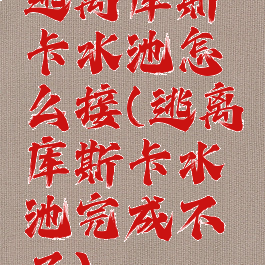 逃离库斯
卡水池怎
么接(逃离
库斯卡水
池完成不
了)